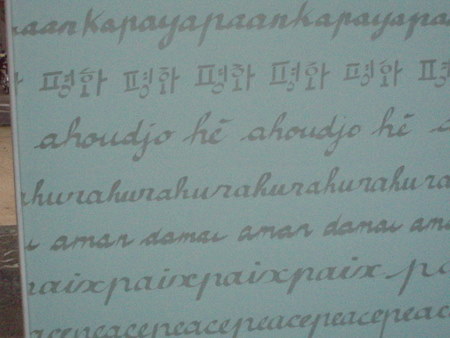 aankapayapaankapayapa
평화 평화 평화 평화 평화 평
ahoudjo hē ahoudjo hē a
hurahurahurahurahura
aman damai aman damai am
aixpaixpaixpaix pa
acepeacepeacepeacepeacepeac